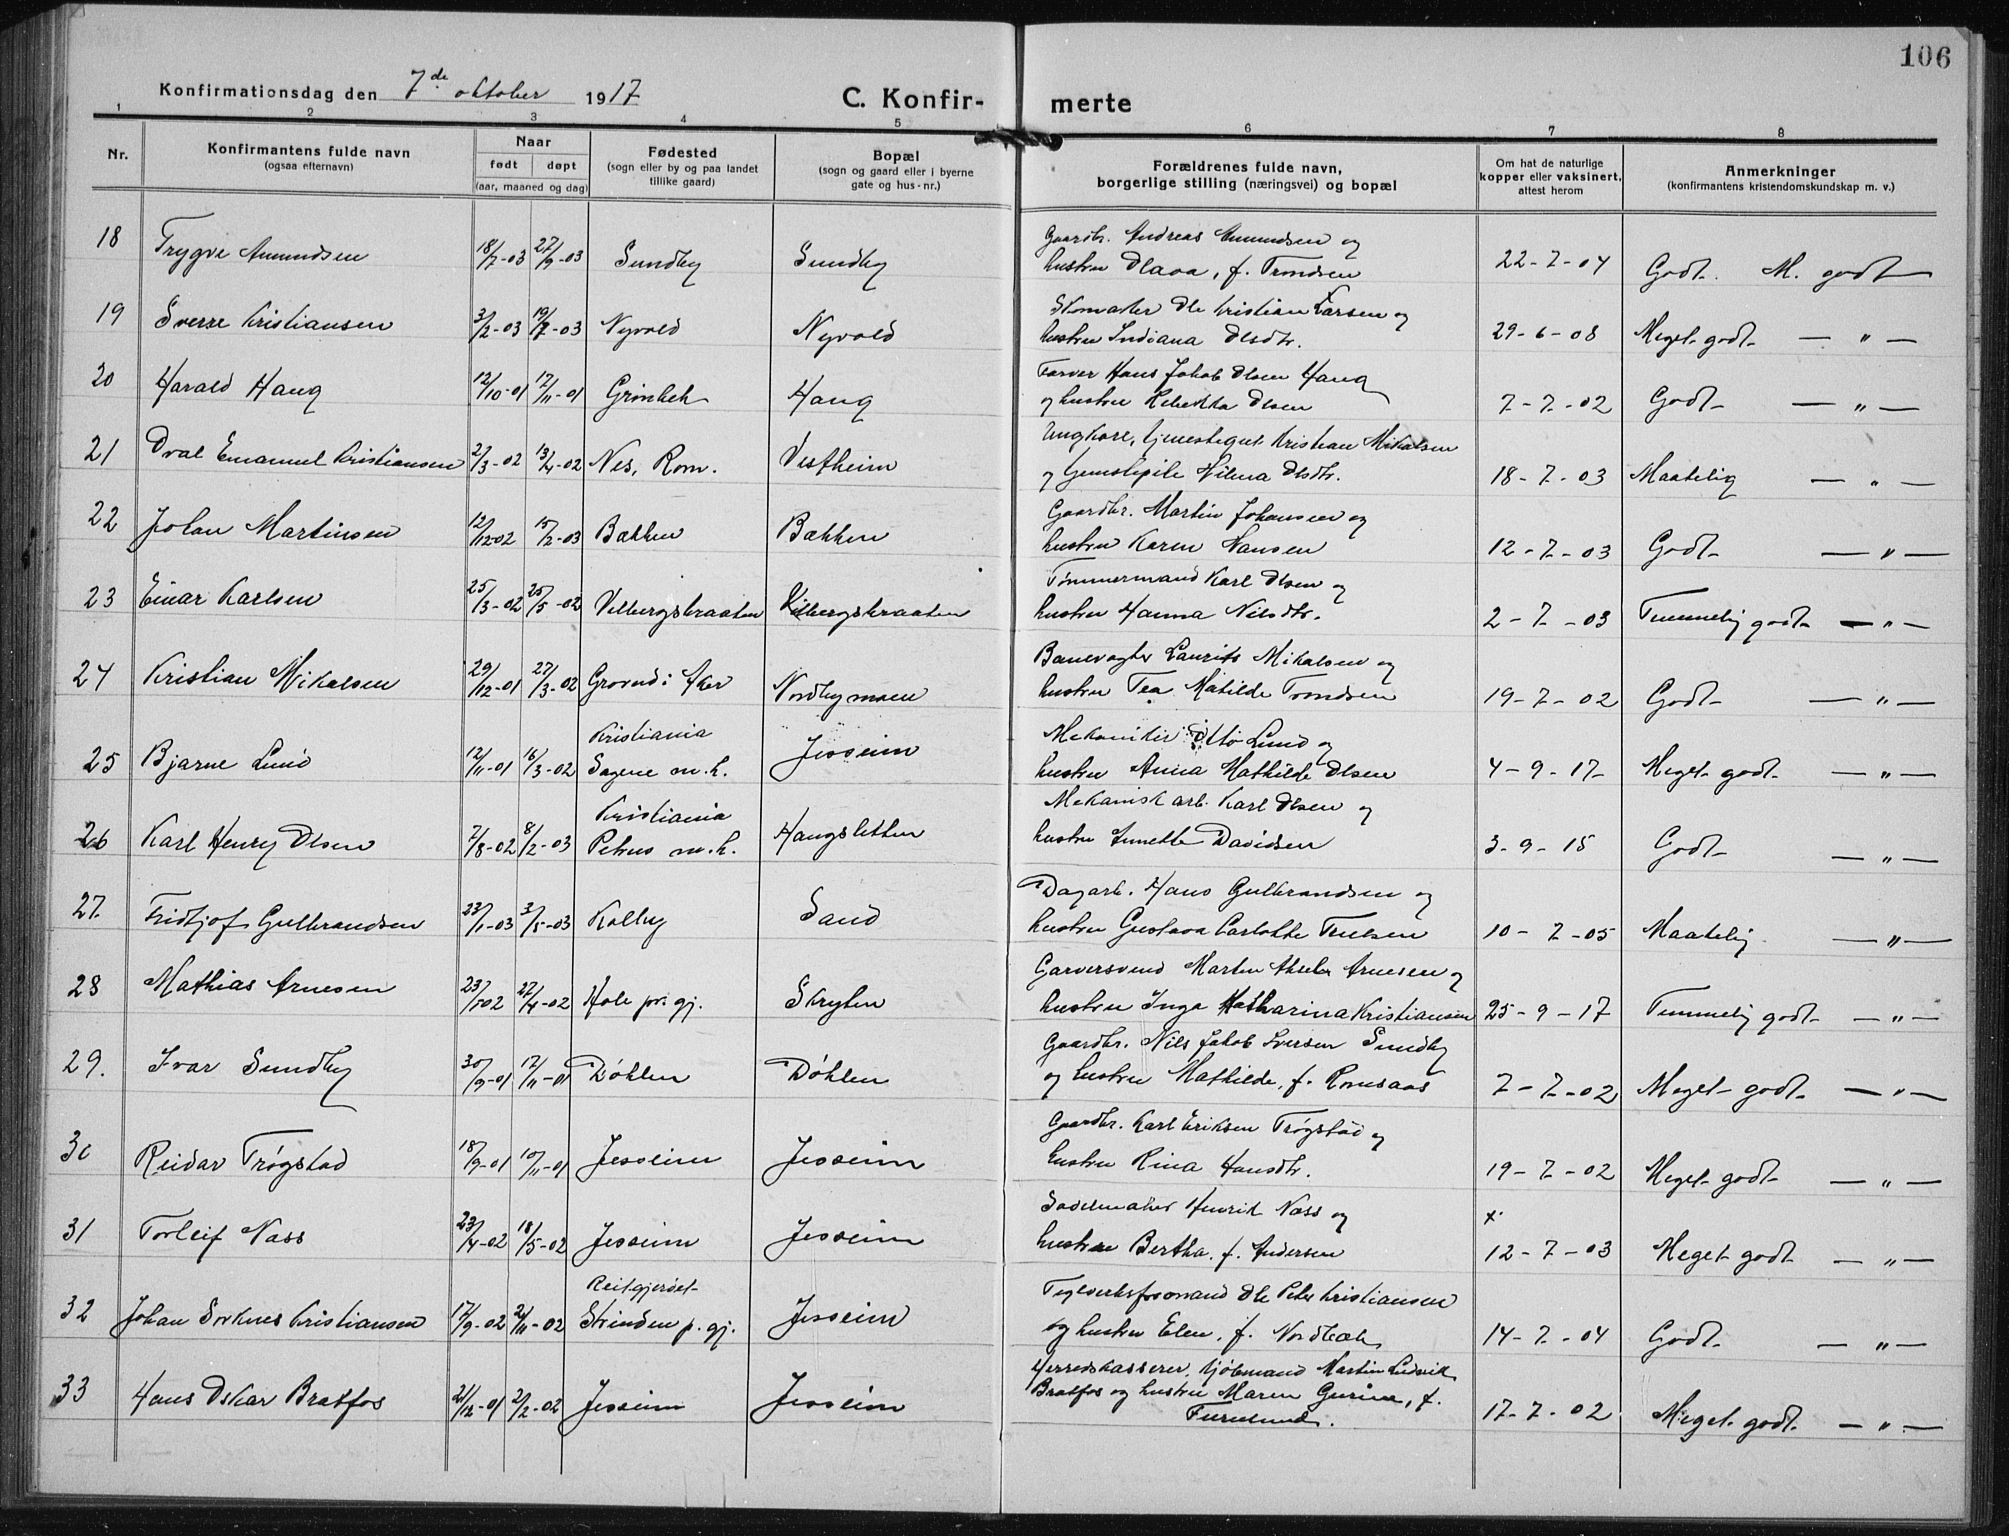 106
Konfirmationsdag den 7de oktober 1917
C. Konfir- merte
1 2 3 4 5 6 7 8
Nr.
Konfirmantens fulde navn
(ogsaa efternavn)
Naar
født døpt
(aar, maaned og dag)
Fødested
(sogn eller by og paa landet
tillike gaard)
Bopæl
(sogn og gaard eller i byerne
gate og hus-nr.)
Forældrenes fulde navn,
borgerlige stilling (næringsvei) og bopæl
Om hat de naturlige
kopper eller vaksinert,
attest herom
Anmerkninger
(konfirmantens kristendomskundskap m. v.)
Gaardbr. Andreas Amundsen og
18 Trygve Amundsen 18/7-03 27/9-03 Sundby Sundby hustru Olava, f. Trondsen 22-7-04 Godt. M. godt
Skomaker Ole Kristian Larsen og
19 Sverre Kristiansen 3/2-03 19/7-03 Nyvold Nyvold hustru Indiana Olsdtr. 29-6-08 Meget godt — " —
Farver Hans Jakob Olsen Haug
20 Harald Haug 12/10-01 17/11-01 Grinbek Haug og hustru Rebekka Olsen 7-7-02 Godt — " —
Ungkarl, tjenestegut Kristian Mikalsen
21 Oval Emanuel Kristiansen 2/3-02 13/4-02 Nes, Rom. Vestheim og tjenestepike Hilma Olsdtr. 18-7-03 Maatelig — " —
Gaardbr. Martin Johansen og
22 Johan Martinsen 12/12-02 15/2-03 Bakken Bakken hustru Karen Hansen 12-7-03 Godt — " —
Tømmermand Karl Olsen og
23 Einar Karlsen 25/3-02 25/5-02 Velbergsbraaten Kilbergsbraaten hustru Hanna Nilsdtr. 2-7-03 Temmelig godt — " —
Banevogter Laurits Mikalsen og
24 Kristian Mikalsen 29/12-01 27/3-02 Grorud i Aker Nordbymoen hustru Tea Matilde Trondsen 19-7-02 Godt — " —
Kristiania Mekaniker Otto Lund og
25 Bjarne Lund 12/11-01 16/3-02 Sagene m.h. Jesseim hustru Anna Mathilde Olsen 4-9-17 Meget godt — " —
Kristiania Mekanisk arb. Karl Olsen og
26 Karl Henry Olsen 7/8-02 8/2-03 Petrus m.h. Haugsletten hustru Annette Davidsen 3-9-15 Godt — " —
Dagarb. Hans Gulbrandsen og
27. Fridtjof Gulbrandsen 23/1-03 3/5-03 Kolby Sand hustru Gustava Carlotte Truelsen 10-7-05 Maatelig — " —
Garversvend Marten Aksler Arnesen og
28 Mathias Arnesen 23/1-02 27/4-02 Hole pr.gj. Skrylen hustru Inga Katharina Kristiansen 25-9-17 Temmelig godt — " —
Gaardbr. Nils Jakob Iversen Sundby
29. Ivar Sundby 30/9-01 17/11-01 Døhlen Døhlen og hustru Mathilde, f. Romsaas 7-7-02 Meget godt — " —
Gaardbr. Karl Eriksen Trøgstad og
30 Reidar Trøgstad 18/9-01 10/11-01 Jesseim Jesseim hustru Rina Hansdtr. 19-7-02 Meget godt — " —
Sadelmaker Henrik Næss og x.
31 Torleif Næss 23/4-02 18/5-02 Jesseim Jesseim hustru Bertha f. Andersen 12-7-03 Meget godt — " —
Reitgjerdet Teglverksformand Ole Peter Kristiansen
32 Johan Sorknes Kristiansen 17/9-02 2/11-02 Strinden p.gj. Jesseim og hustru Elen, f. Nordbæk 14-7-04 Godt — " —
Herredskasserer, kjøbmand Martin Ludvik
33 Hans Oskar Bratfos 21/12-01 2/2-02 Jesseim Jesseim Bratfos og hustru Maren Gurine, f. 17-7-02 Meget godt — " —
Furusund.